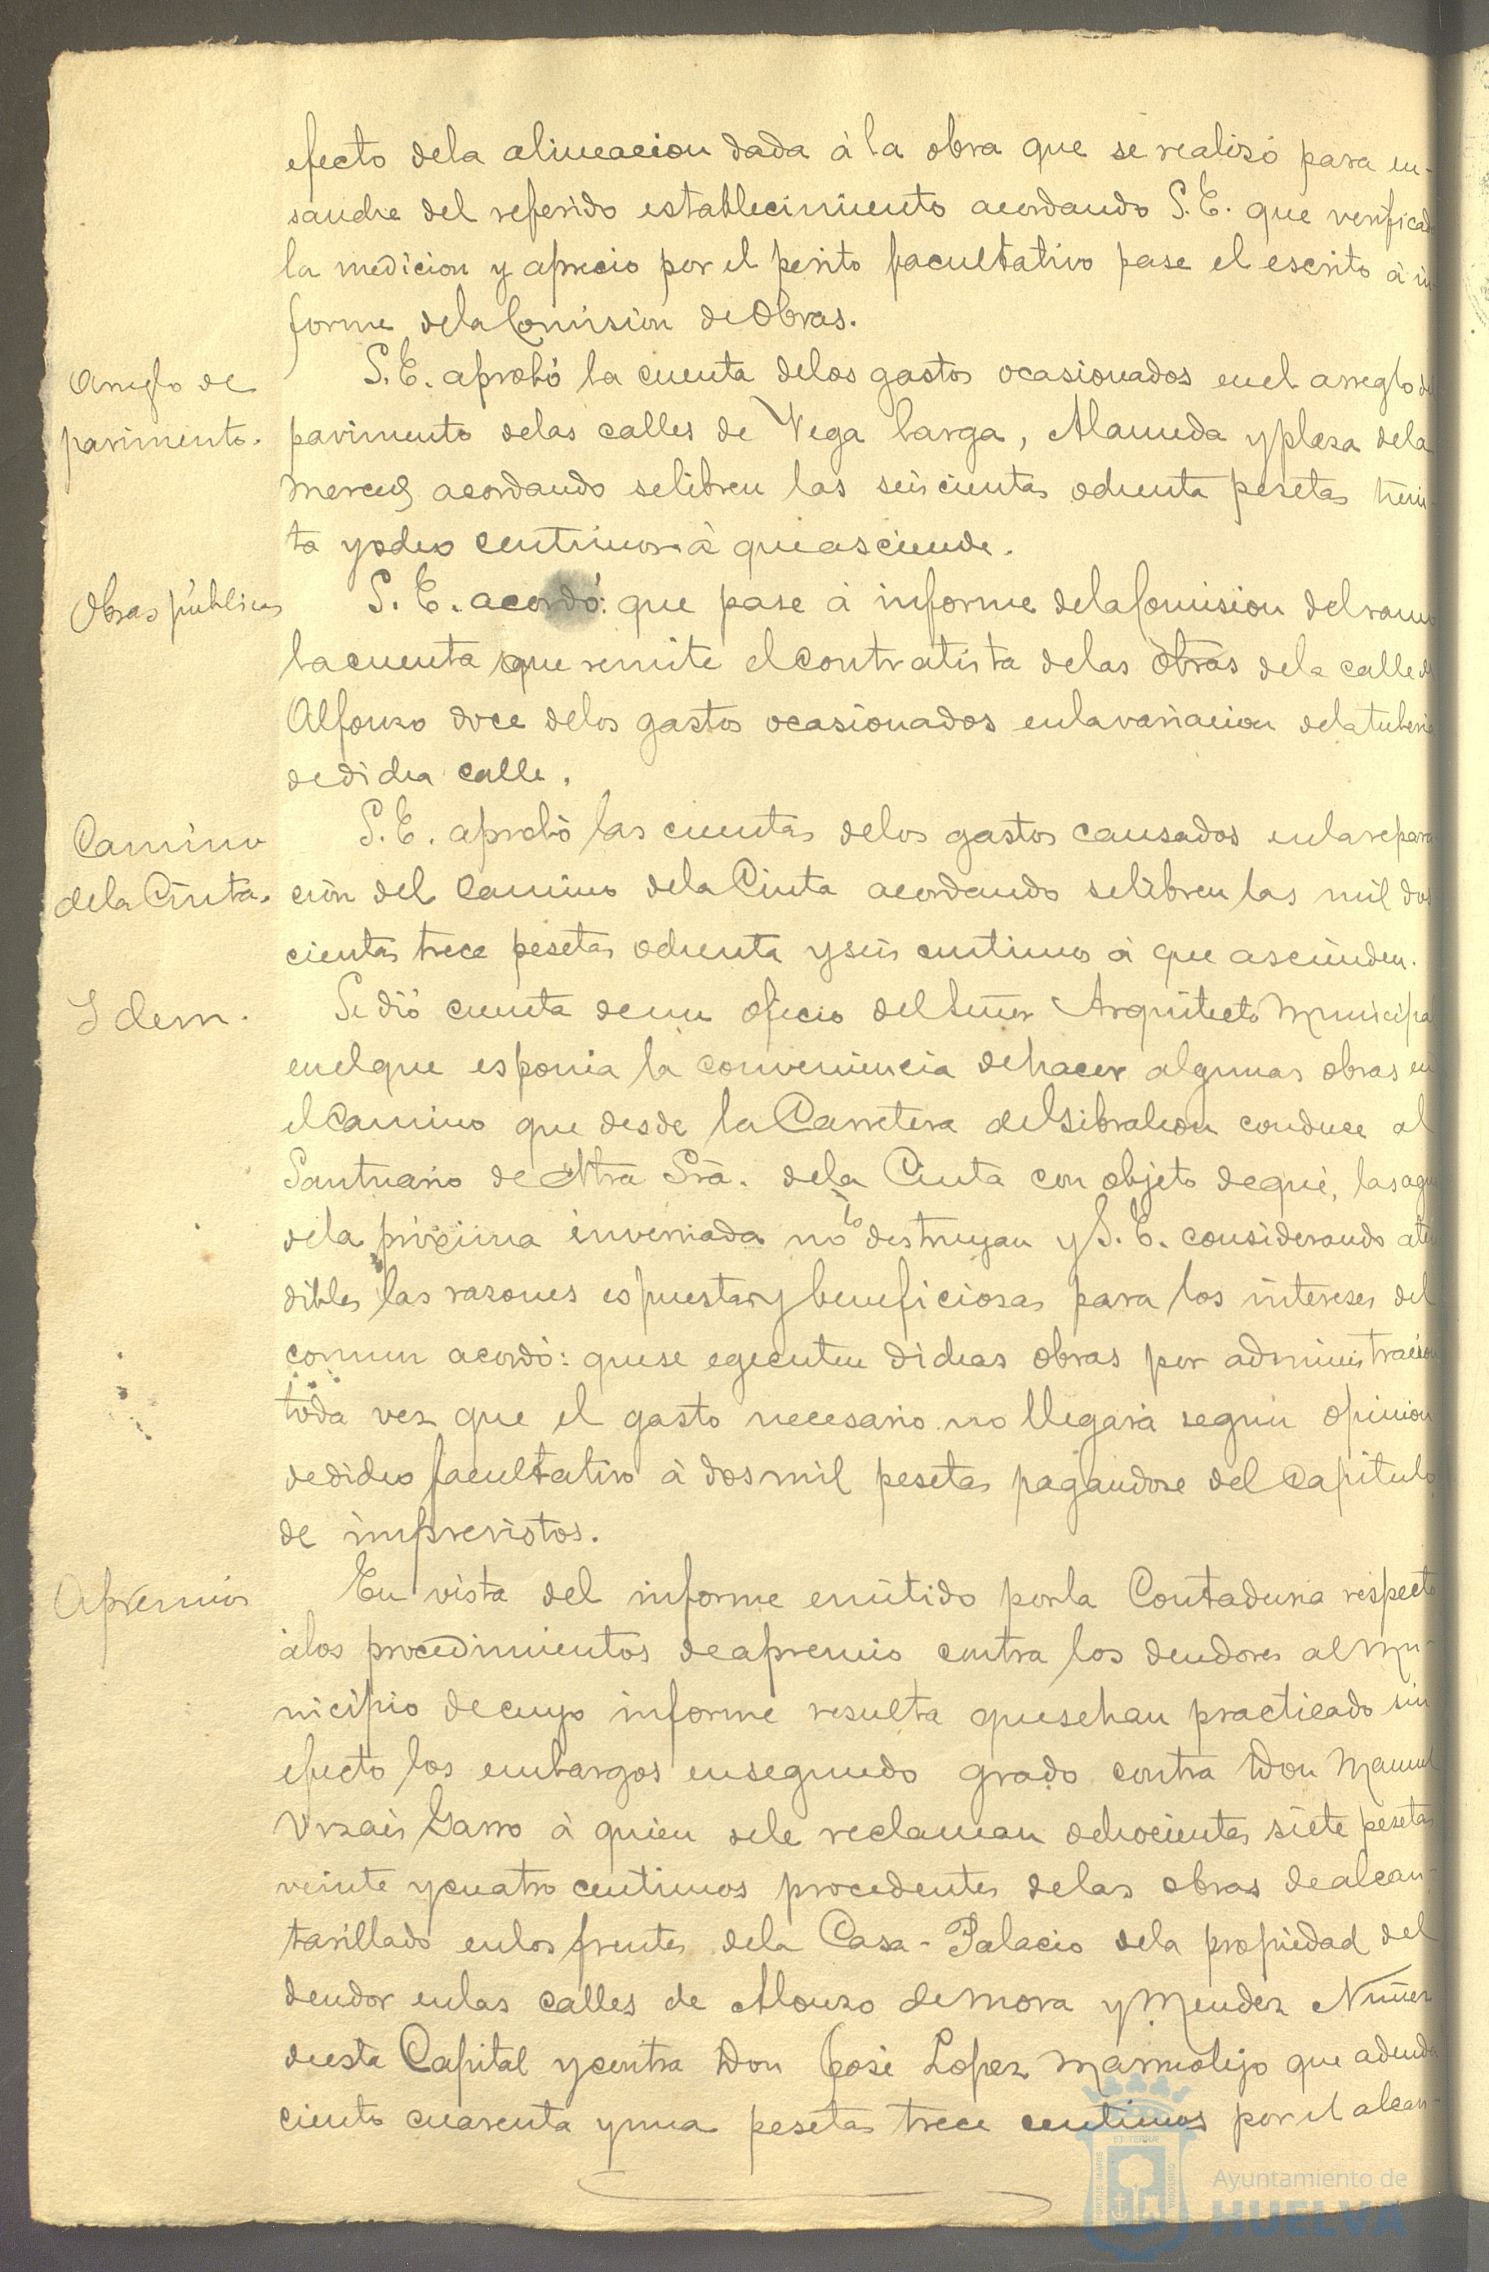 efecto dela alineacion dada à la obra que se realizó para en-
sanche del referido establecimiento acordando S.E. que verificada
la medicion y aprecio por el perito facultativo pase el escrito à in-
forme dela Comision de Obras.
Arreglo de
pavimento.
S.E. aprobó la cuenta delos gastos ocasionados enel arreglo del
pavimento delas calles de Vega larga, Alameda y plaza dela
Merced, acordando selibren las seiscientas ochenta pesetas trein-
ta yocho centimos à que asciende.
Obras públicas
S.E. acordó: que pase à informe dela Comision del ramo
lacuenta que remite el contratista delas obras dela calle de
Alfonso doce delos gastos ocasionados enlavariacion delatuberia
dedicha calle.
Camino
dela Cinta.
S.E. aprobó las cuentas delos gastos causados enlarepara
ción del Camino dela Cinta acordando selibren las mil dos
cientas trece pesetas ochenta yseis centimos à que ascienden.
Idem.
Se dió cuenta deun oficio del Señor Arquitecto Municipal
enelque esponia la conveniencia dehacer algunas obras en
el Camino que desde la Carretera de Gibraleon conduce al
Santuario de Ntra Sra. dela Cinta con objeto deque, lasaguas
dela próxima invernada no lo destruyan y S.E. considerando aten
dibles las razones espuestas y beneficiosas para los intereses del
comun acordó: quese egecuten dichas obras por administracion
toda vez que el gasto necesario no llegará segun opinion
dedicho facultativo à dosmil pesetas pagandose del Capitulo
de imprevistos.
Apremios
En vista del informe emitido porla Contaduria respecto
àlos procedimientos deapremio contra los deudores al Mu-
nicipio decuyo informe resulta quesehan practicado sin
efecto los embargos ensegundo grado contra Don Manuel
Urzais Garro à quien sele reclaman ochocientas siete pesetas
veinte ycuatro centimos procedentes delas obras dealcan-
tarillado enlos frentes dela Casa-Palacio dela propiedad del
deudor enlas calles de Alonso de Mora y Mendez Nuñez
deesta Capital ycontra Don José Lopez Marmolejo que adeuda
ciento cuarenta yuna pesetas trece centimos por el alcan-
Ayuntamiento de
HUELVA